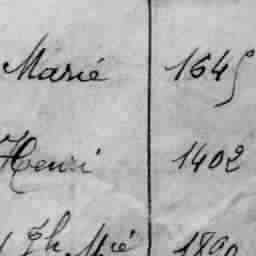 Marié 1645
Henri 1402
Jh Mié 1890